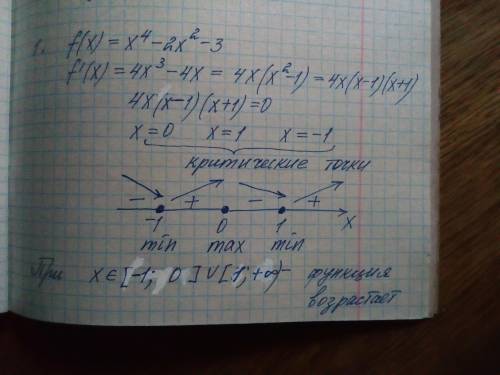 1. f(x) = x⁴ - 2x² - 3
f'(x) = 4x³ - 4x = 4x(x² - 1) = 4x(x-1)(x+1)
4x(x-1)(x+1) = 0
x = 0 x = 1 x = -1
критические точки
- + - +
-1 0 1 x
min max min
При x ∈ [-1; 0] ∪ [1; +∞) - функция
возрастает